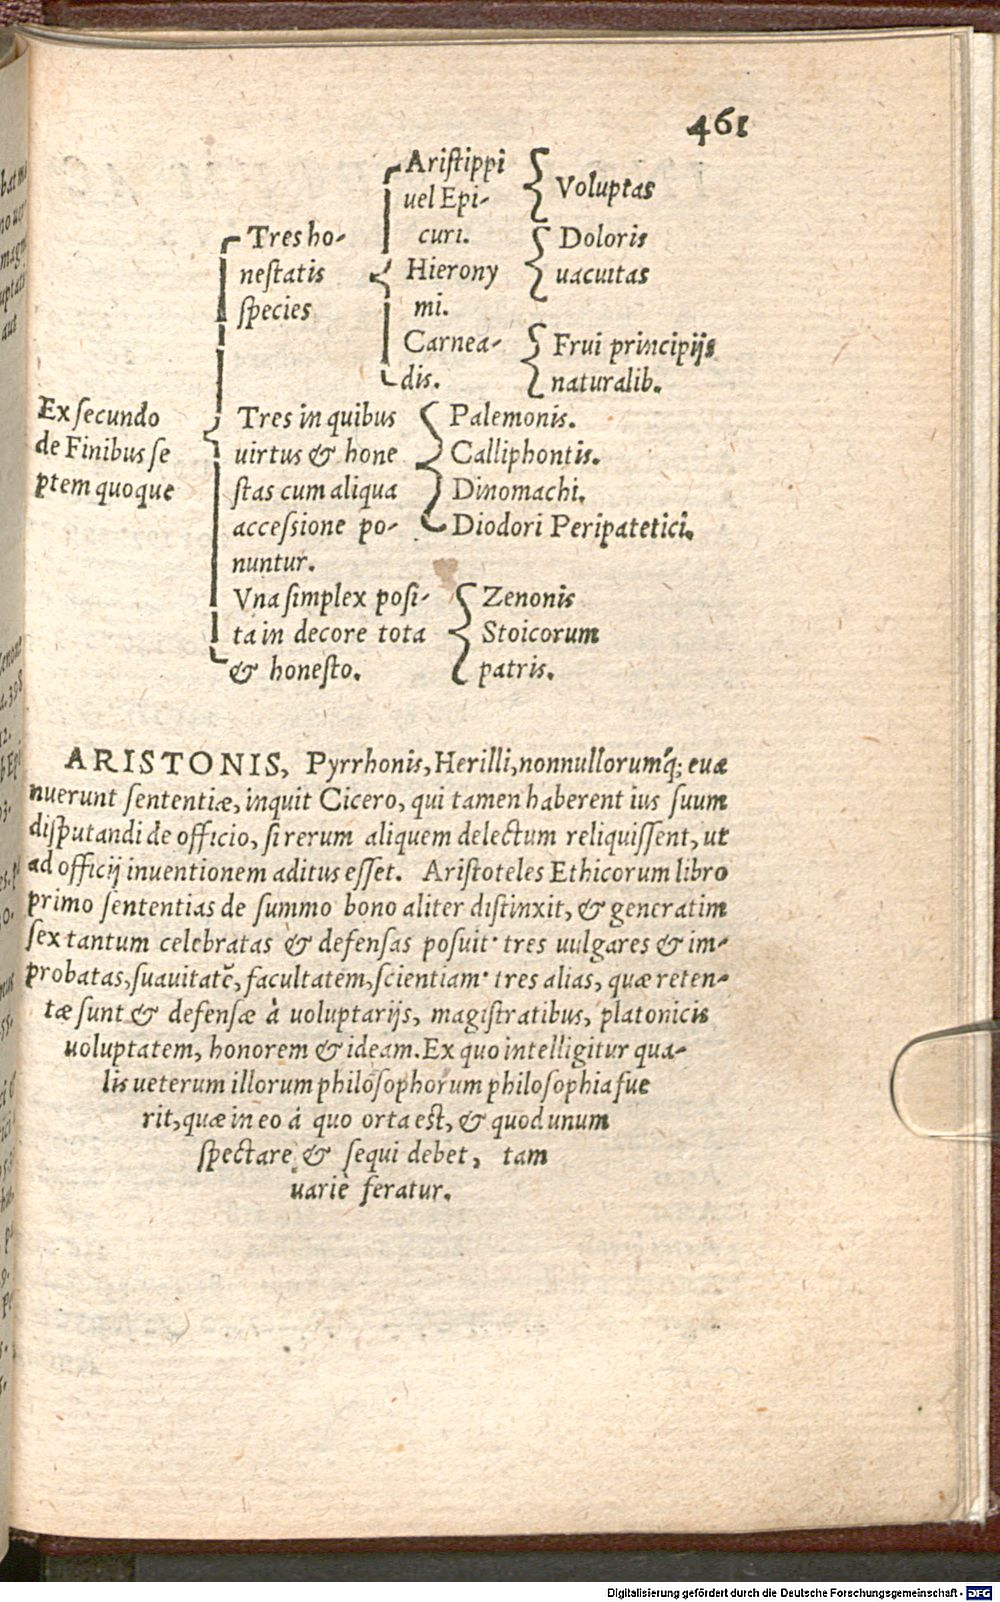 461
Aristippi
uel Epi-
curi.
Voluptas
Hierony
mi.
Doloris
uacuitas
Carnea-
dis.
Frui principijs
naturalib.
Tres ho-
nestatis
species
Ex secundo
de Finibus se
ptem quoque
Tres in quibus
uirtus & hone
stas cum aliqua
accessione po-
nuntur.
Palemonis.
Calliphontis.
Dinomachi.
Diodori Peripatetici.
Vna simplex posi-
ta in decore tota
& honesto.
Zenonis
Stoicorum
patris.
ARISTONIS, Pyrrhonis, Herilli, nonnullorumq́; eua
nuerunt sententiæ, inquit Cicero, qui tamen haberent ius suum
disputandi de officio, si rerum aliquem delectum reliquissent, ut
ad officij inuentionem aditus esset. Aristoteles Ethicorum libro
primo sententias de summo bono aliter distinxit, & generatim
sex tantum celebratas & defensas posuit· tres uulgares & im-
probatas, suauitatē, facultatem, scientiam· tres alias, quæ reten-
tæ sunt & defensæ à uoluptarijs, magistratibus, platonicis
uoluptatem, honorem & ideam. Ex quo intelligitur qua-
lis ueterum illorum philosophorum philosophia fue
rit, quæ in eo à quo orta est, & quod unum
spectare & sequi debet, tam
uariè feratur.
Digitalisierung gefördert durch die Deutsche Forschungsgemeinschaft - DFG